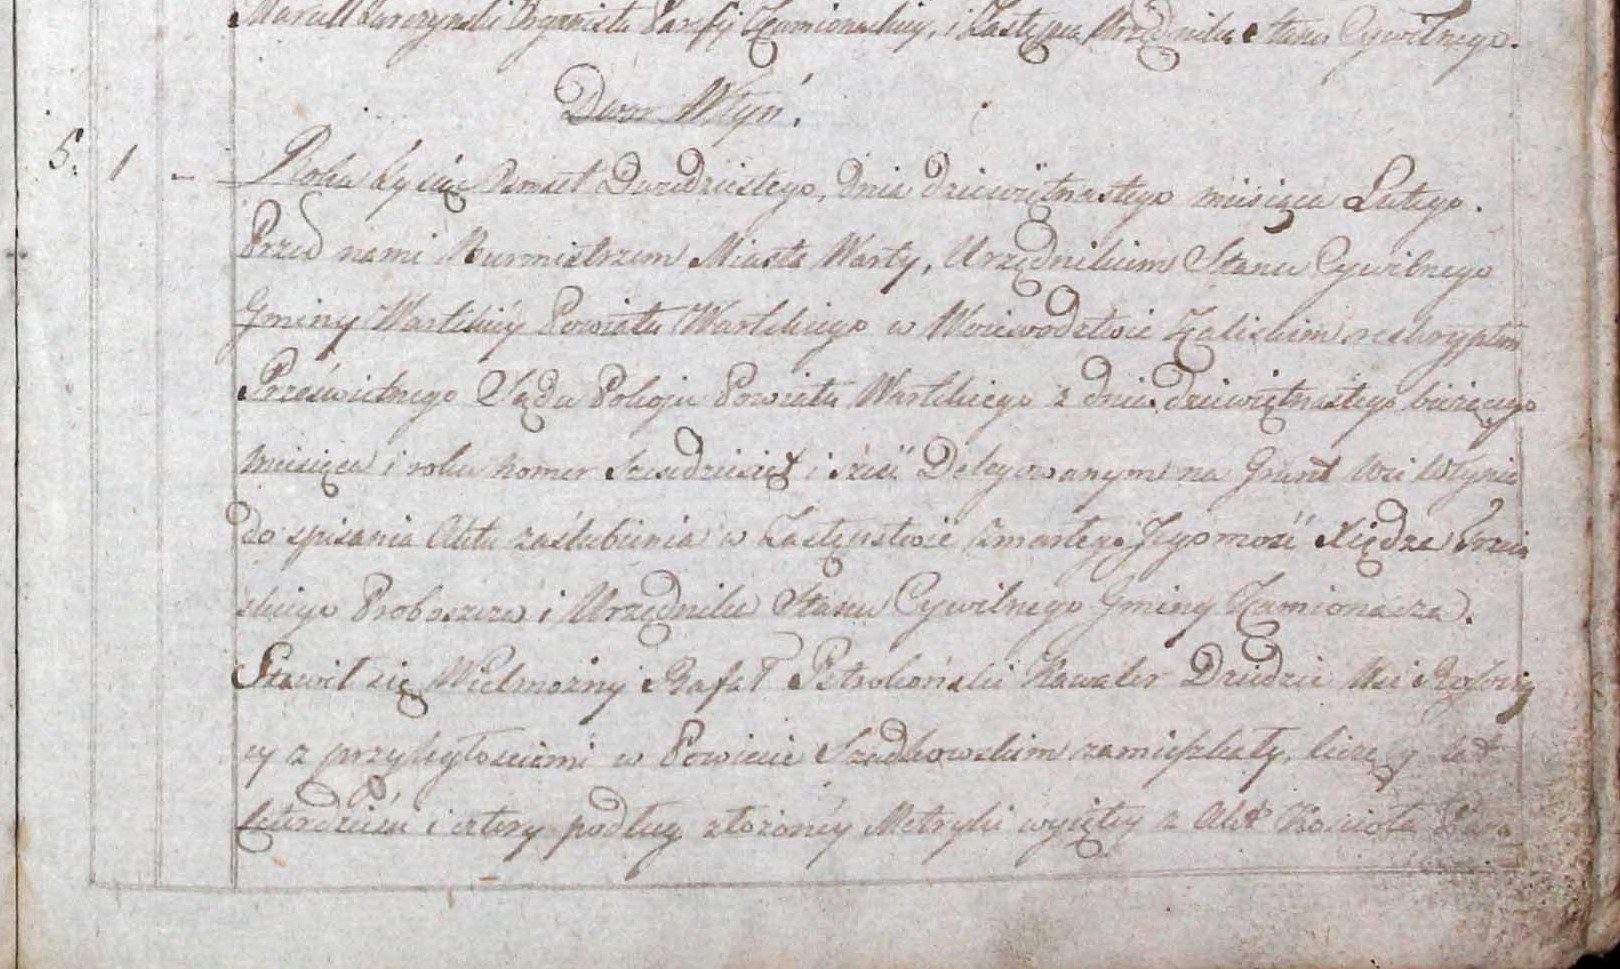 Marcell Karczynski Organista Parafij Kamionackiey, i Zastępca Urzędnika Stanu Cywilnego.
Dwor Włyń.
5. 1 – Roku tysiąc Osmset Dwudziestego, Dnia dziewiętnastego miesiąca Lutego.
Przed nami Burmistrzem Miasta Warty, Urzędnikiem Stanu Cywilnego
Gminy Wartskiey Powiatu Wartskiego w Woiewodztwie Kaliskim reskryptem
Prześwietnego Sądu Pokoju Powiatu Wartskiego z dnia dziewiętnastego bieżącego
miesiąca i roku nomer szesdziesiąt i sześć Delegowanym na Grunt Wsi Włynia
do spisania Aktu zaślubienia w Zastępstwie zmarłego Jegomość Xiędza
skiego Proboszcza i Urzędnika Stanu Cywilnego Gminy Kamionacza.
Stawił się Wielmożny Rafał Pstrokoński Kawaler Dziedzic Wsi
cy z przyległosciami w Powiecie Szadkowskim zamieszkały, liczący lat
czterdzieści i cztery podług złożoney Metryki wyiętey z Akt Kościoła